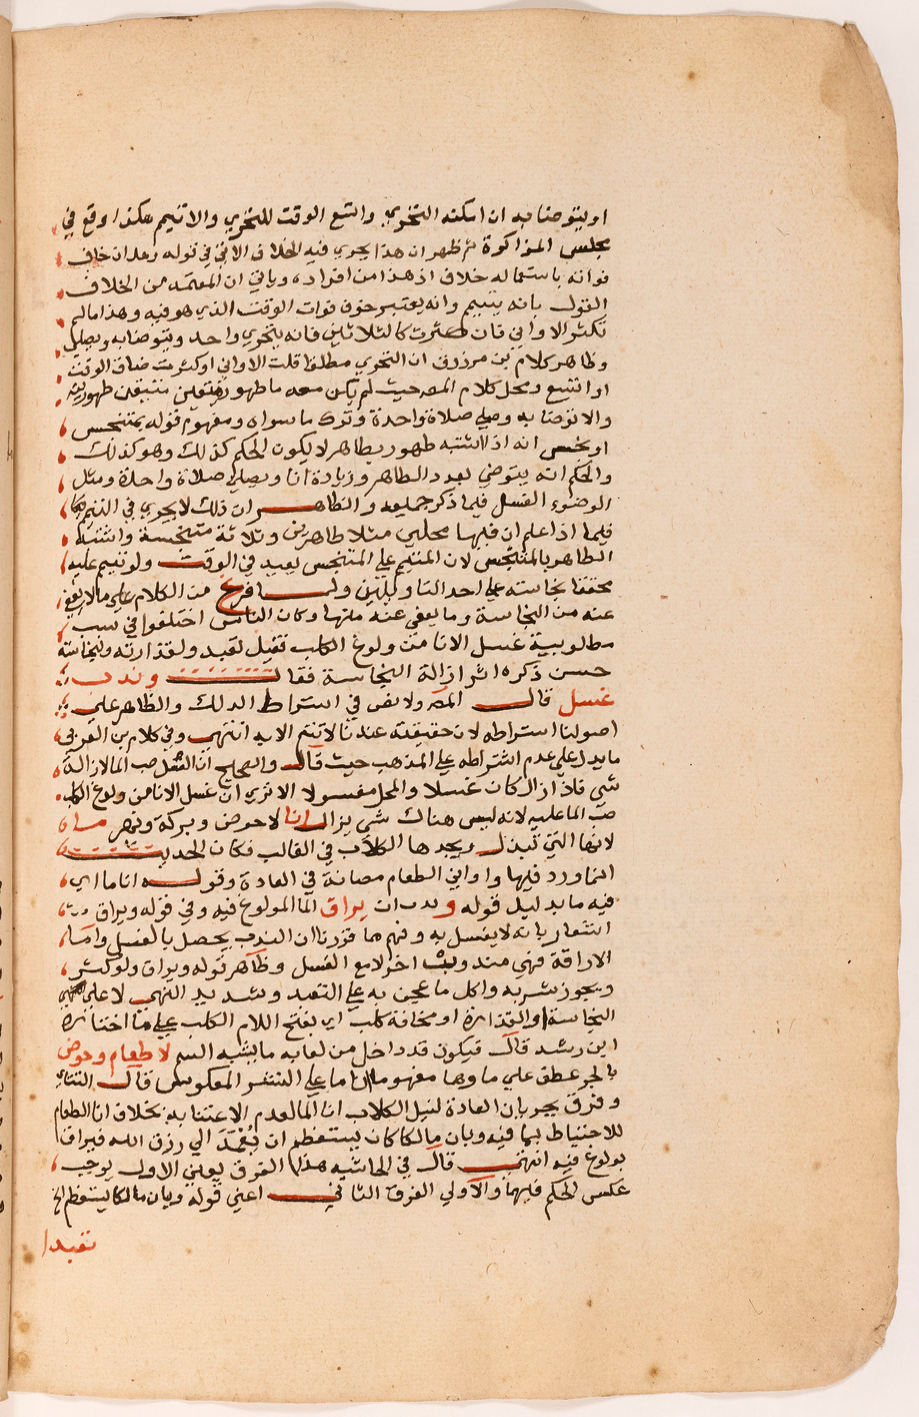 او ليتوضا به ان امكنه التحري واتسع الوقت للتحري والا تيمم هكذا وقع في
مجلس المذاكرة ثم ظهر ان هذا يجري فيه الخلاف الاتي في قوله وهل ان خاف
فواته باستعماله خلاف اذ هذا من افراده وياتي ان المعتمد من الخلاف
القول بانه يتيمم وانه يعتبر خوف فوات الوقت الذي هو فيه وهذا ما لم
تكثر الاواني فان كثرت كالثلاثين فانه يتحري واحد ويتوضا به ويصلي
وظاهر كلام بن مرزوق ان التحري مطلقا قلت الاواني او كثرت ضاق الوقت
او اتسع ومحل كلام المصـ حيث لم يكن معه ما طهور متيقن طهوريته
والا توضا به وصلي صلاة واحدة وترك ما سواه ومفهوم قوله بمتنجس
او نجس انه اذا اشتبه طهور بطاهر لا يكون الحكم كذلك وهو كذلك
والحكم انه يتوضي بعدد الطاهر وزيادة انا ويصلي صلاة واحدة ومثل
الوضوء الغسل فيما ذكر جميعه والظاهر ان ذلك لا يجري في التيمم كما
فيما اذا علم ان فيها محلين مثلا طاهرين وثلاثة متنجسة واشتبه
الطاهر بالمتنجس لان المتيمم علي المتنجس يعيد في الوقت ولو تيمم عليه
محققا نجاسته علي احد التاويلين ولما فرغ من الكلام علي ما لا يعفي
عنه من النجاسة وما يعفي عنه منها وكان الناس اختلفوا في سبب
مطلوبية غسل الانا من ولوغ الكلب فقيل تعبد ولقذارته ونجاسته
حسن ذكره اثر ازالة النجاسة فقال وندب
غسل قال المصـ ولا نص في اشتراط الدلك والظاهر علي
اصولنا اشتراطه لان حقيقته عندنا لا تتم الا به انتهي وفي كلام بن العربي
ما يدل علي عدم اشتراطه علي المذهب حيث قال والصحيح ان الغسل صب الما لازالة
شي فاذا زال كان غسلا والمحل مغسولا الا تري ان غسل الانا من ولوغ الكلب
صب الما عليه لانه ليس هناك شي يزال انا لا حوض وبركة ونهر ما
لانها التي تبذل ويجدها الكلاب في الغالب فكان الحديث
انما ورد فيها واواني الطعام مصانة في العادة وقوله انا ما اي
فيه ما بدليل قوله وندب ان يراق الما المولوغ فيه وفي قوله ويراق
اشعار بانه لا يغسل به وفهم مما قررنا ان الندب يحصل بالغسل واما
الاراقة فهي مندوب اخر لا مع الغسل وظاهر قوله ويراق ولو كثر
ويجوز شربه واكل ما عجن به علي التعبد وشديد النهي لا علي
النجاسة او القذارة او مخافة كلب اي بفتح اللام الكلب علي ما اختاره
ابن رشد قال فيكون قد داخل من لعابه ما يشبه السم لا طعام وحوض
بالجر عطف علي ما وهما مفهوما انا ما علي النشر المعكوس قال التتاي
وفرق بجريان العادة لنيل الكلاب انا الما لعدم الاعتنا به بخلاف انا الطعام
للاحتياط بما فيه وبان مالكا كان يستعظم ان يعمد الي رزق الله فيراق
بولوغ فيه انتهي قال في الحاشيه هذا الفرق يعني الاول يوجب
عكس الحكم فيها والاولي الفرق الثاني اعني قوله وبان مالكا يستعظم الخ
تعبدا